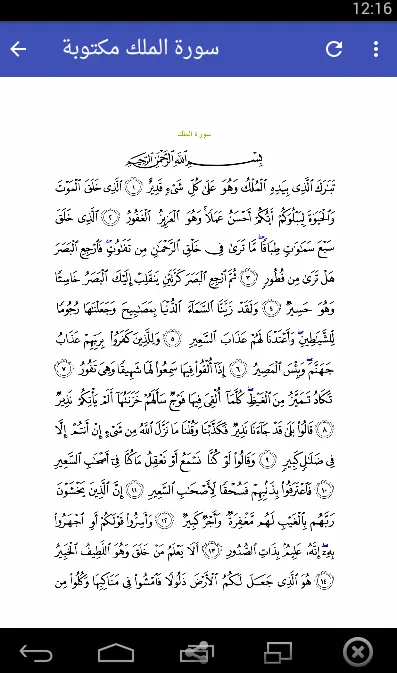 12:16
سورة الملك مكتوبة
سورة الملك
بِسْمِ اللَّهِ الرَّحْمَٰنِ الرَّحِيمِ
تَبَارَكَ الَّذِي بِيَدِهِ الْمُلْكُ وَهُوَ عَلَىٰ كُلِّ شَيْءٍ قَدِيرٌ ١ الَّذِي خَلَقَ الْمَوْتَ
وَالْحَيَاةَ لِيَبْلُوَكُمْ أَيُّكُمْ أَحْسَنُ عَمَلًا وَهُوَ الْعَزِيزُ الْغَفُورُ ٢ الَّذِي خَلَقَ
سَبْعَ سَمَاوَاتٍ طِبَاقًا مَّا تَرَىٰ فِي خَلْقِ الرَّحْمَٰنِ مِن تَفَاوُتٍ فَارْجِعِ الْبَصَرَ
هَلْ تَرَىٰ مِن فُطُورٍ ٣ ثُمَّ ارْجِعِ الْبَصَرَ كَرَّتَيْنِ يَنقَلِبْ إِلَيْكَ الْبَصَرُ خَاسِئًا
وَهُوَ حَسِيرٌ ٤ وَلَقَدْ زَيَّنَّا السَّمَاءَ الدُّنْيَا بِمَصَابِيحَ وَجَعَلْنَاهَا رُجُومًا
لِّلشَّيَاطِينِ وَأَعْتَدْنَا لَهُمْ عَذَابَ السَّعِيرِ ٥ وَلِلَّذِينَ كَفَرُوا بِرَبِّهِمْ عَذَابُ
جَهَنَّمَ وَبِئْسَ الْمَصِيرُ ٦ إِذَا أُلْقُوا فِيهَا سَمِعُوا لَهَا شَهِيقًا وَهِيَ تَفُورُ ٧
تَكَادُ تَمَيَّزُ مِنَ الْغَيْظِ كُلَّمَا أُلْقِيَ فِيهَا فَوْجٌ سَأَلَهُمْ خَزَنَتُهَا أَلَمْ يَأْتِكُمْ نَذِيرٌ
٨ قَالُوا بَلَىٰ قَدْ جَاءَنَا نَذِيرٌ فَكَذَّبْنَا وَقُلْنَا مَا نَزَّلَ اللَّهُ مِن شَيْءٍ إِنْ أَنتُمْ إِلَّا
فِي ضَلَالٍ كَبِيرٍ ٩ وَقَالُوا لَوْ كُنَّا نَسْمَعُ أَوْ نَعْقِلُ مَا كُنَّا فِي أَصْحَابِ السَّعِيرِ
١٠ فَاعْتَرَفُوا بِذَنبِهِمْ فَسُحْقًا لِّأَصْحَابِ السَّعِيرِ ١١ إِنَّ الَّذِينَ يَخْشَوْنَ
رَبَّهُم بِالْغَيْبِ لَهُم مَّغْفِرَةٌ وَأَجْرٌ كَبِيرٌ ١٢ وَأَسِرُّوا قَوْلَكُمْ أَوِ اجْهَرُوا
بِهِ إِنَّهُ عَلِيمٌ بِذَاتِ الصُّدُورِ ١٣ أَلَا يَعْلَمُ مَنْ خَلَقَ وَهُوَ اللَّطِيفُ الْخَبِيرُ
١٤ هُوَ الَّذِي جَعَلَ لَكُمُ الْأَرْضَ ذَلُولًا فَامْشُوا فِي مَنَاكِبِهَا وَكُلُوا مِن